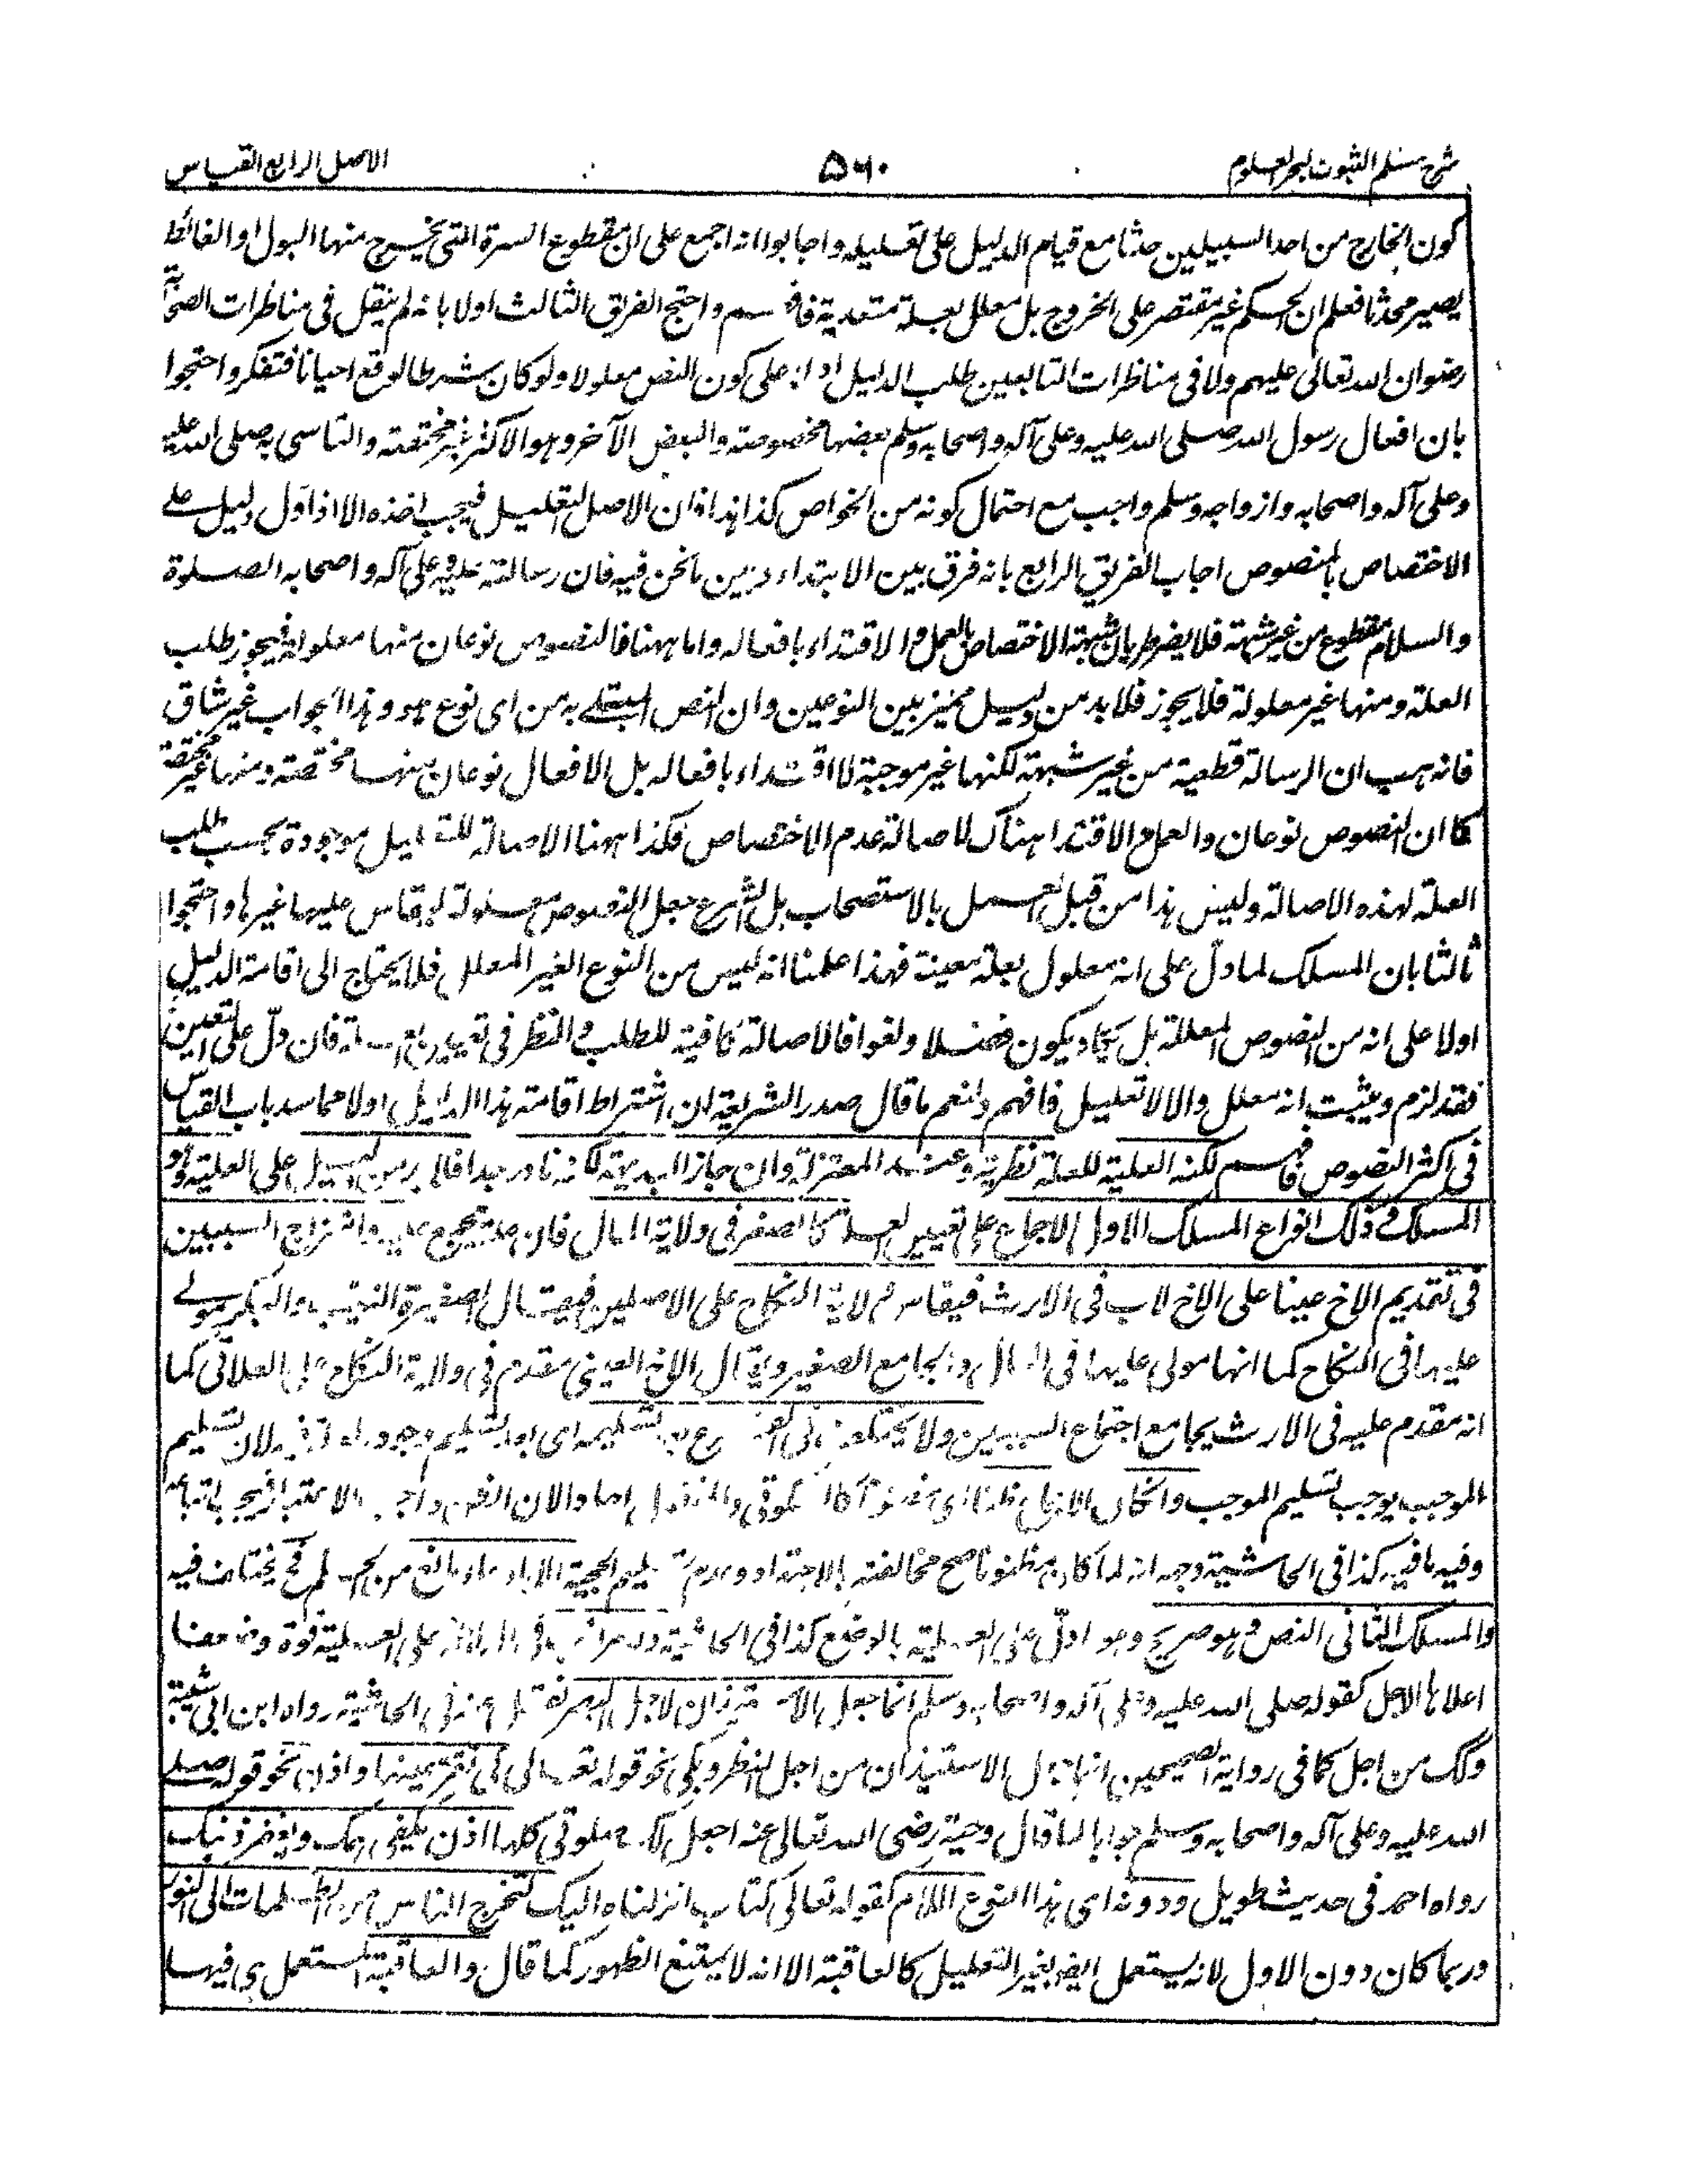 شرح مسلم الثبوت لبحر العلوم
۵۶۰
الاصل الرابع القياس
كون الخارج من احد السبيلين حدثا مع قيام الدليل على تعليله واجابوا انه اجمع على ان مقطوع السرة التي يخرج منها البول او الغائط
يصير محدثا فعلم ان الحكم غير مقتصر على الخروج بل معلل بعلة متعدية فافهم واحتج الفريق الثالث اولا بانه لم ينقل في مناظرات الصحابة
رضوان الله تعالى عليهم ولا في مناظرات التابعين طلب الدليل اولا على كون النص معلولا ولو كان شرطا لوقع احيانا فتفكر واحتجوا
بان افعال رسول الله صلى الله عليه وعلى آله واصحابه وسلم بعضها مخصوصة والبعض الآخر وهو الاكثر غير مختصة والتاسي به صلى الله عليه
وعلى آله واصحابه وازواجه وسلم واجب مع احتمال كونه من الخواص كذا هذا فان الاصل التعليل فيجب اخذه الا اذا دل دليل على
الاختصاص بالمنصوص اجاب الفريق الرابع بانه فرق بين الابتداء وبين ما نحن فيه فان رسالته عليه وعلى آله واصحابه الصلوة
والسلام مقطوع من غير شبهة فلا يضر طريان شبهة الاختصاص بالعمل والاقتداء بافعاله واما ههنا فالنصوص نوعان منها معلولة فيجوز طلب
العلة ومنها غير معلولة فلا يجوز فلا بد من دليل مميز بين النوعين وان النص المبتلى به من اى نوع هو وهذا الجواب غير شاق
فانه هب ان الرسالة قطعية من غير شبهة لكنها غير موجبة للاقتداء بافعاله بل الافعال نوعان منها مختصة ومنها غير مختصة
كما ان النصوص نوعان والعمل والاقتداء هناك لاصالة عدم الاختصاص فكذا ههنا الاصالة للتعليل موجودة بحسب طلب
العلة لهذه الاصالة وليس هذا من قبل العمل بالاستصحاب بل الشرع جعل النصوص معلولة ليقاس عليها غيرها واحتجوا
ثالثا بان المسلك لما دل على انه معلول بعلة معينة فهذا علمنا انه ليس من النوع الغير المعلل فلا يحتاج الى اقامة الدليل
اولا على انه من النصوص المعللة بل يكاد يكون فضلا ولغوا فالاصالة كافية للطلب والنظر في تعيين العلة فان دل على التعيين
فقد لزم ويثبت انه معلل والا لا تعليل فافهم ولنعم ما قال صدر الشريعة ان اشتراط اقامة هذا الدليل اولا مما سد باب القياس
في اكثر النصوص فافهم لكنه العلية للعلة نظرية وعند المعتزلة وان جاز البديهة لكنه نادر جدا فلا بد من دليل على العلية وهو
المسلك وذلك انواع المسلك الاول الاجماع على تعيين العلة كالصغر في ولاية المال فان علته مجمع عليه وامتزاج السببين
في تقديم الاخ عينا على الاخ لاب في الارث فيقاس ولاية النكاح على الاصلين فيقال الصغيرة الثيب والبكر مولى
عليها في النكاح كما انها مولى عليها في المال بجامع الصغر ويقال الاخ العيني مقدم في ولاية النكاح على العلاتي كما
انه مقدم عليه في الارث بجامع اجتماع السببين ولا يختلف في الفرع بعد تسليمه اى بعد تسليم وجوده لان تسليم
الموجب يوجب تسليم الموجب وان كان الاجماع ظنيا
وفيه ما فيه كذا في الحاشية وجهه انه لما كان مظنونا صح مخالفته بالاجتهاد
والمسلك الثاني النص وهو صريح وهو ما دل على العلية بالوضع كذا في الحاشية وله مراتب في الدلالة على العلية قوة وضعفا
اعلاها لاجل كقوله صلى الله عليه وعلى آله واصحابه وسلم انما جعل الاستيذان لاجل البصر في الحاشية رواه ابن ابي شيبة
وكك من اجل كما في رواية الصحيحين انما جعل الاستيذان من اجل النظر وكى نحو قوله تعالى كى تقر عينها واذن نحو قوله صلى
الله عليه وعلى آله واصحابه وسلم جوابا لما قال رضى الله تعالى عنه اجعل لك صلوتى كلها اذن يكفى همك ويغفر ذنبك
رواه احمد في حديث طويل ودونه اى هذا النوع اللام كقوله تعالى كتاب انزلناه اليك لتخرج الناس من الظلمات الى النور
وربما كان دون الاول لانه يستعمل ايضا لغير التعليل كالعاقبة الا انه لا يمتنع الظهور كما قال والعاقبة المستعمل هى فيها